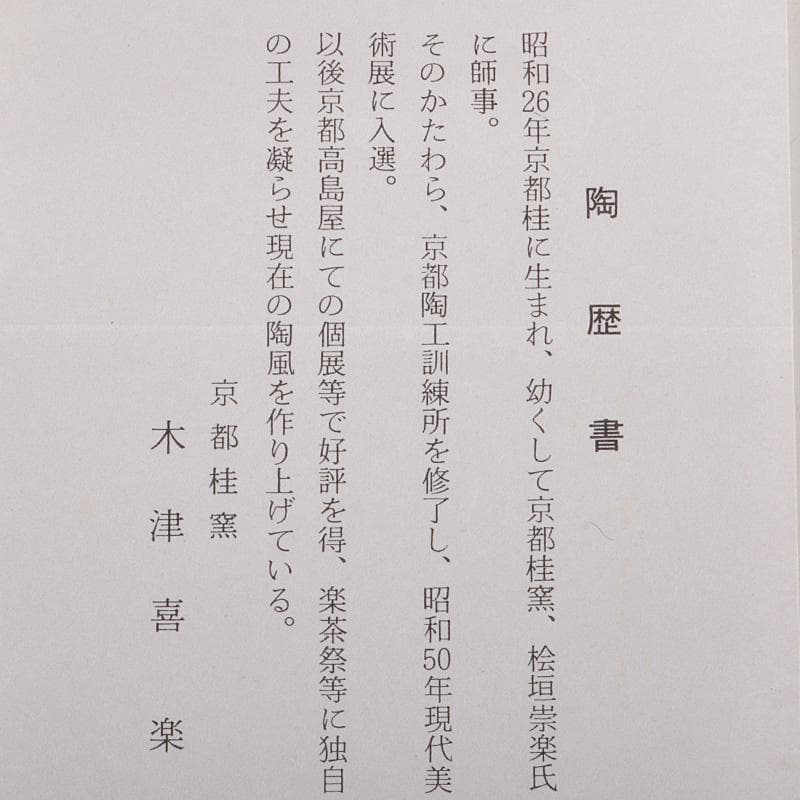 陶歴書
昭和26年京都桂に生まれ、幼くして京都桂窯、桧垣崇楽氏
に師事。
そのかたわら、京都陶工訓練所を修了し、昭和50年現代美
術展に入選。
以後京都高島屋にての個展等で好評を得、楽茶祭等に独自
の工夫を凝らせ現在の陶風を作り上げている。
京都桂窯
木津喜楽